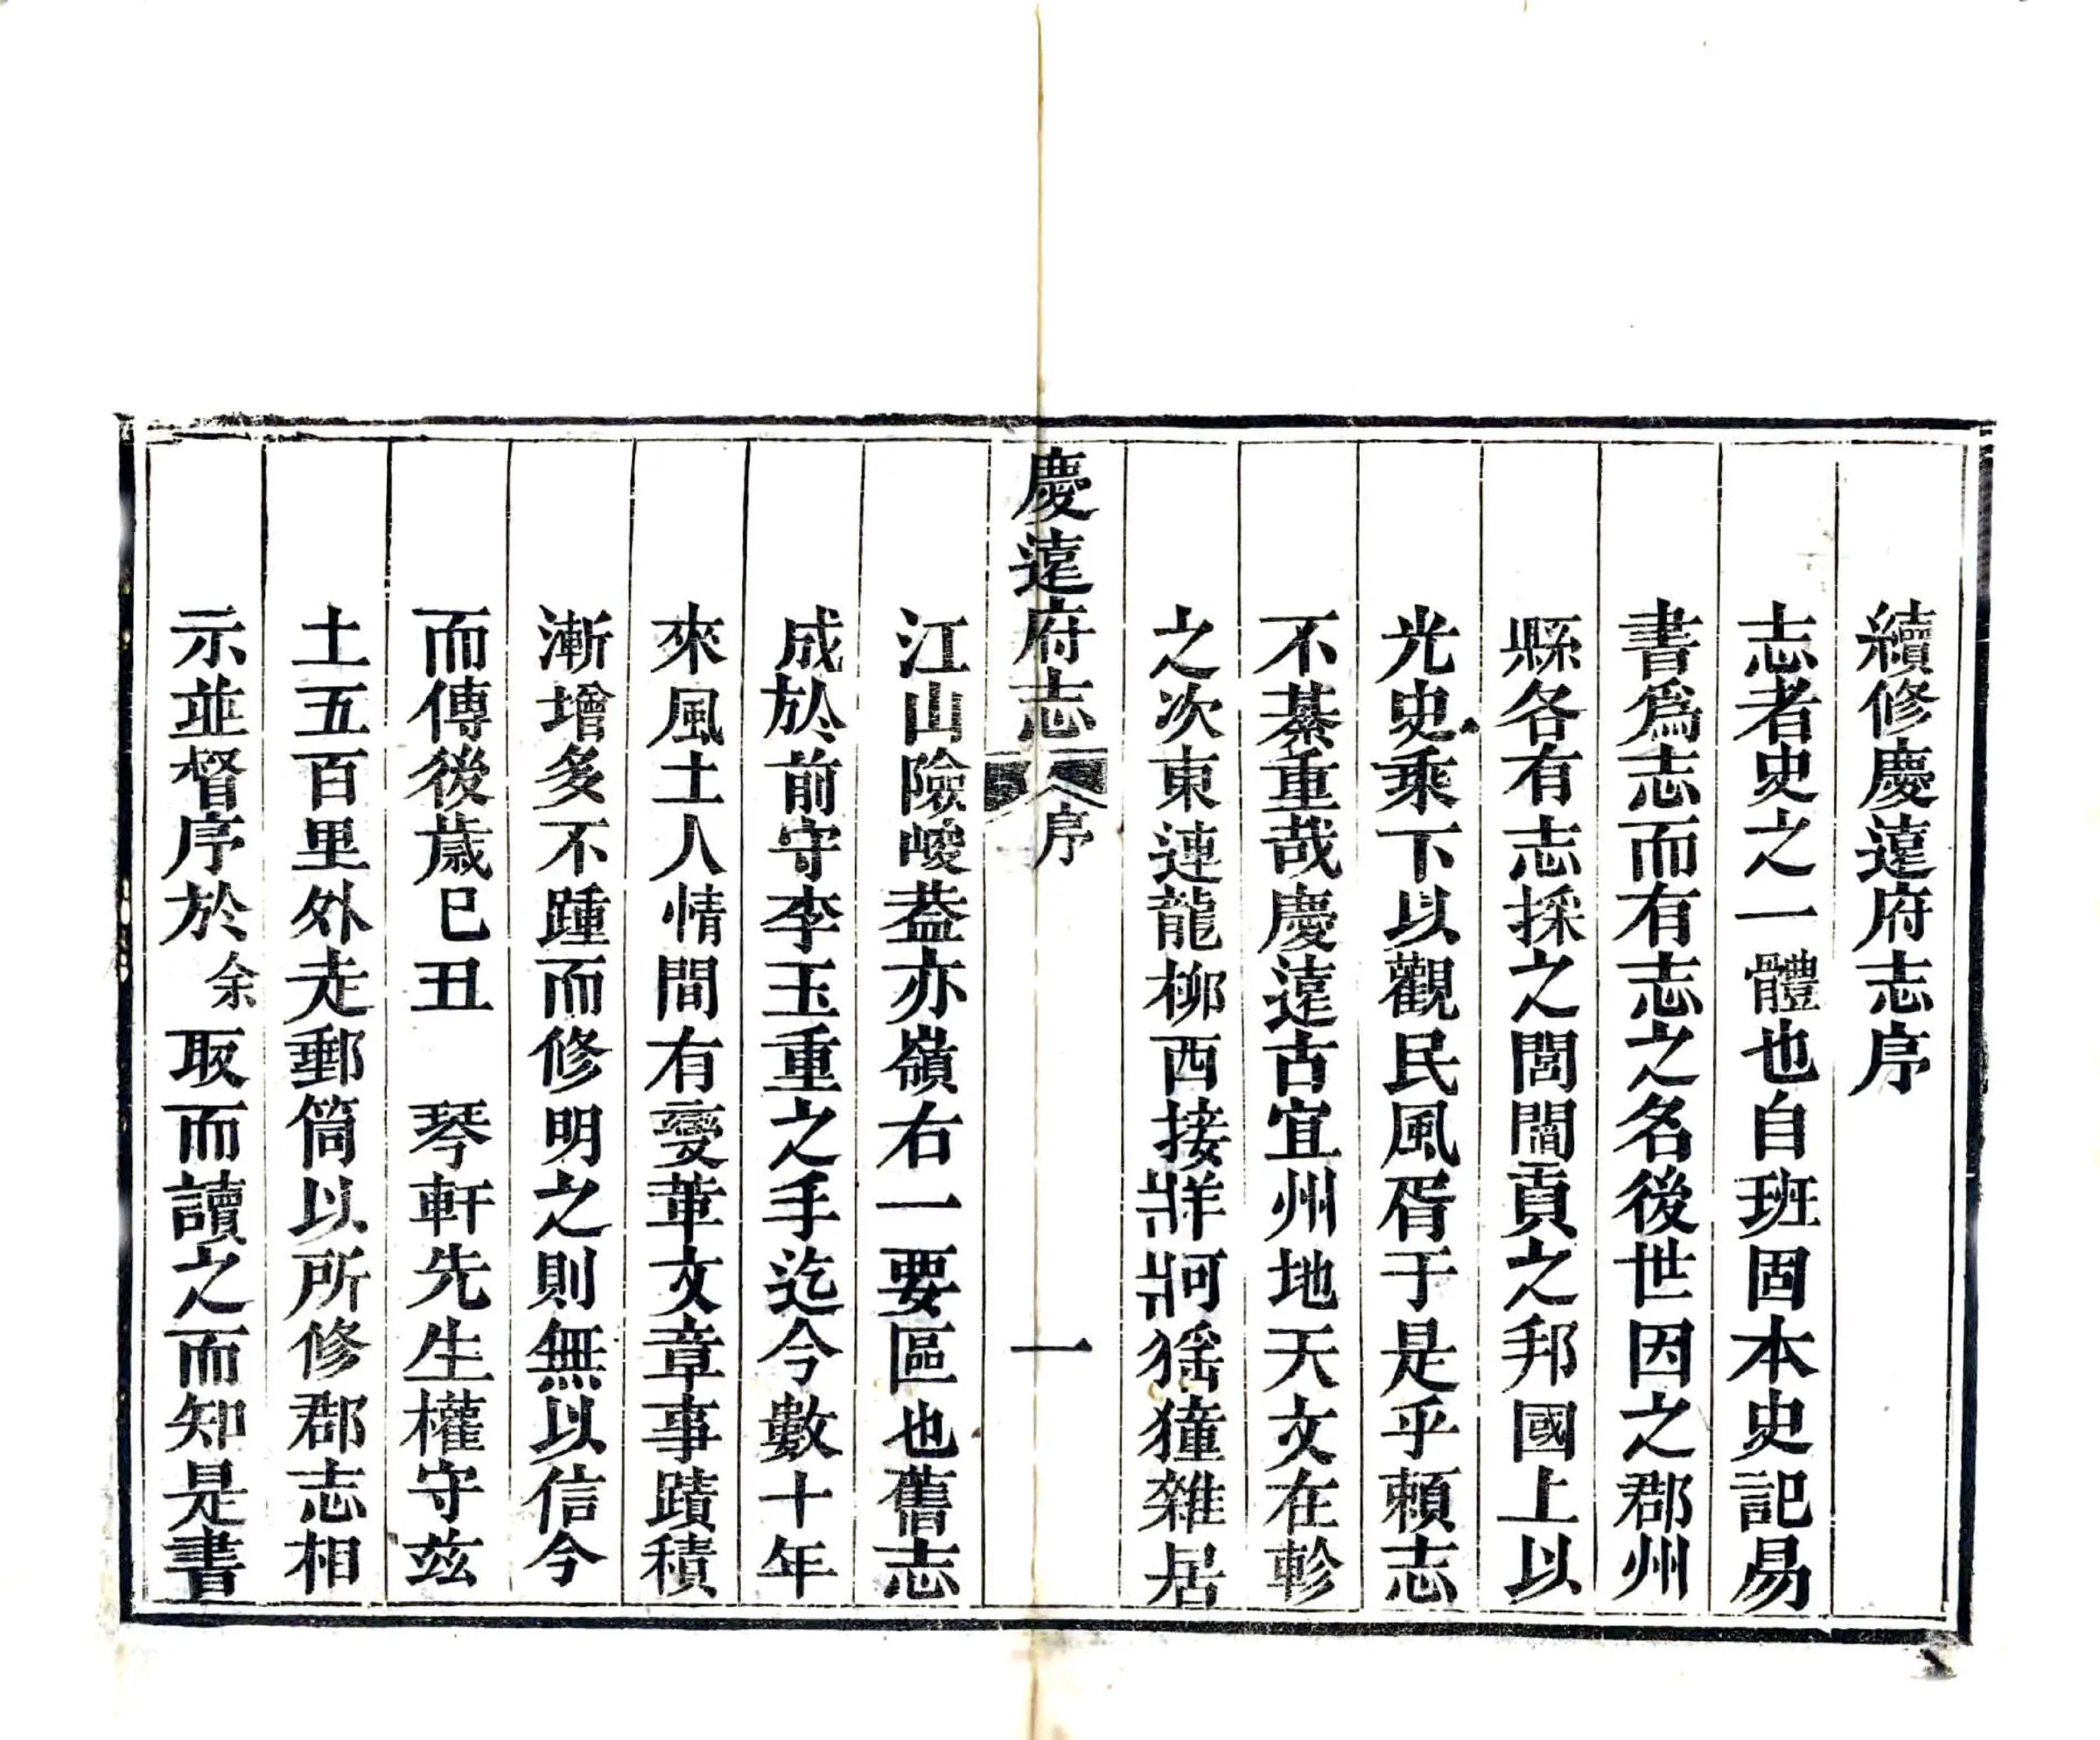 續修慶遠府志序
志者史之一體也自班固本史記易
書爲志而有志之名後世因之郡州
縣各有志採之閭閻貢之邦國上以
光史乘下以觀民風胥于是乎頼志
不綦重哉慶遠古宜州地天文在軫
之次東連龍柳西接牂牁猺獞雜居
慶遠府志 序 一
江山險峻葢亦嶺右一要區也舊志
成於前守李玉重之手迄今數十年
來風土人情間有變革文章事蹟積
漸增多不踵而修明之則無以信今
而傳後歲巳丑 琴軒先生權守玆
土五百里外走郵筒以所修郡志相
示並督序於余取而讀之而知是書